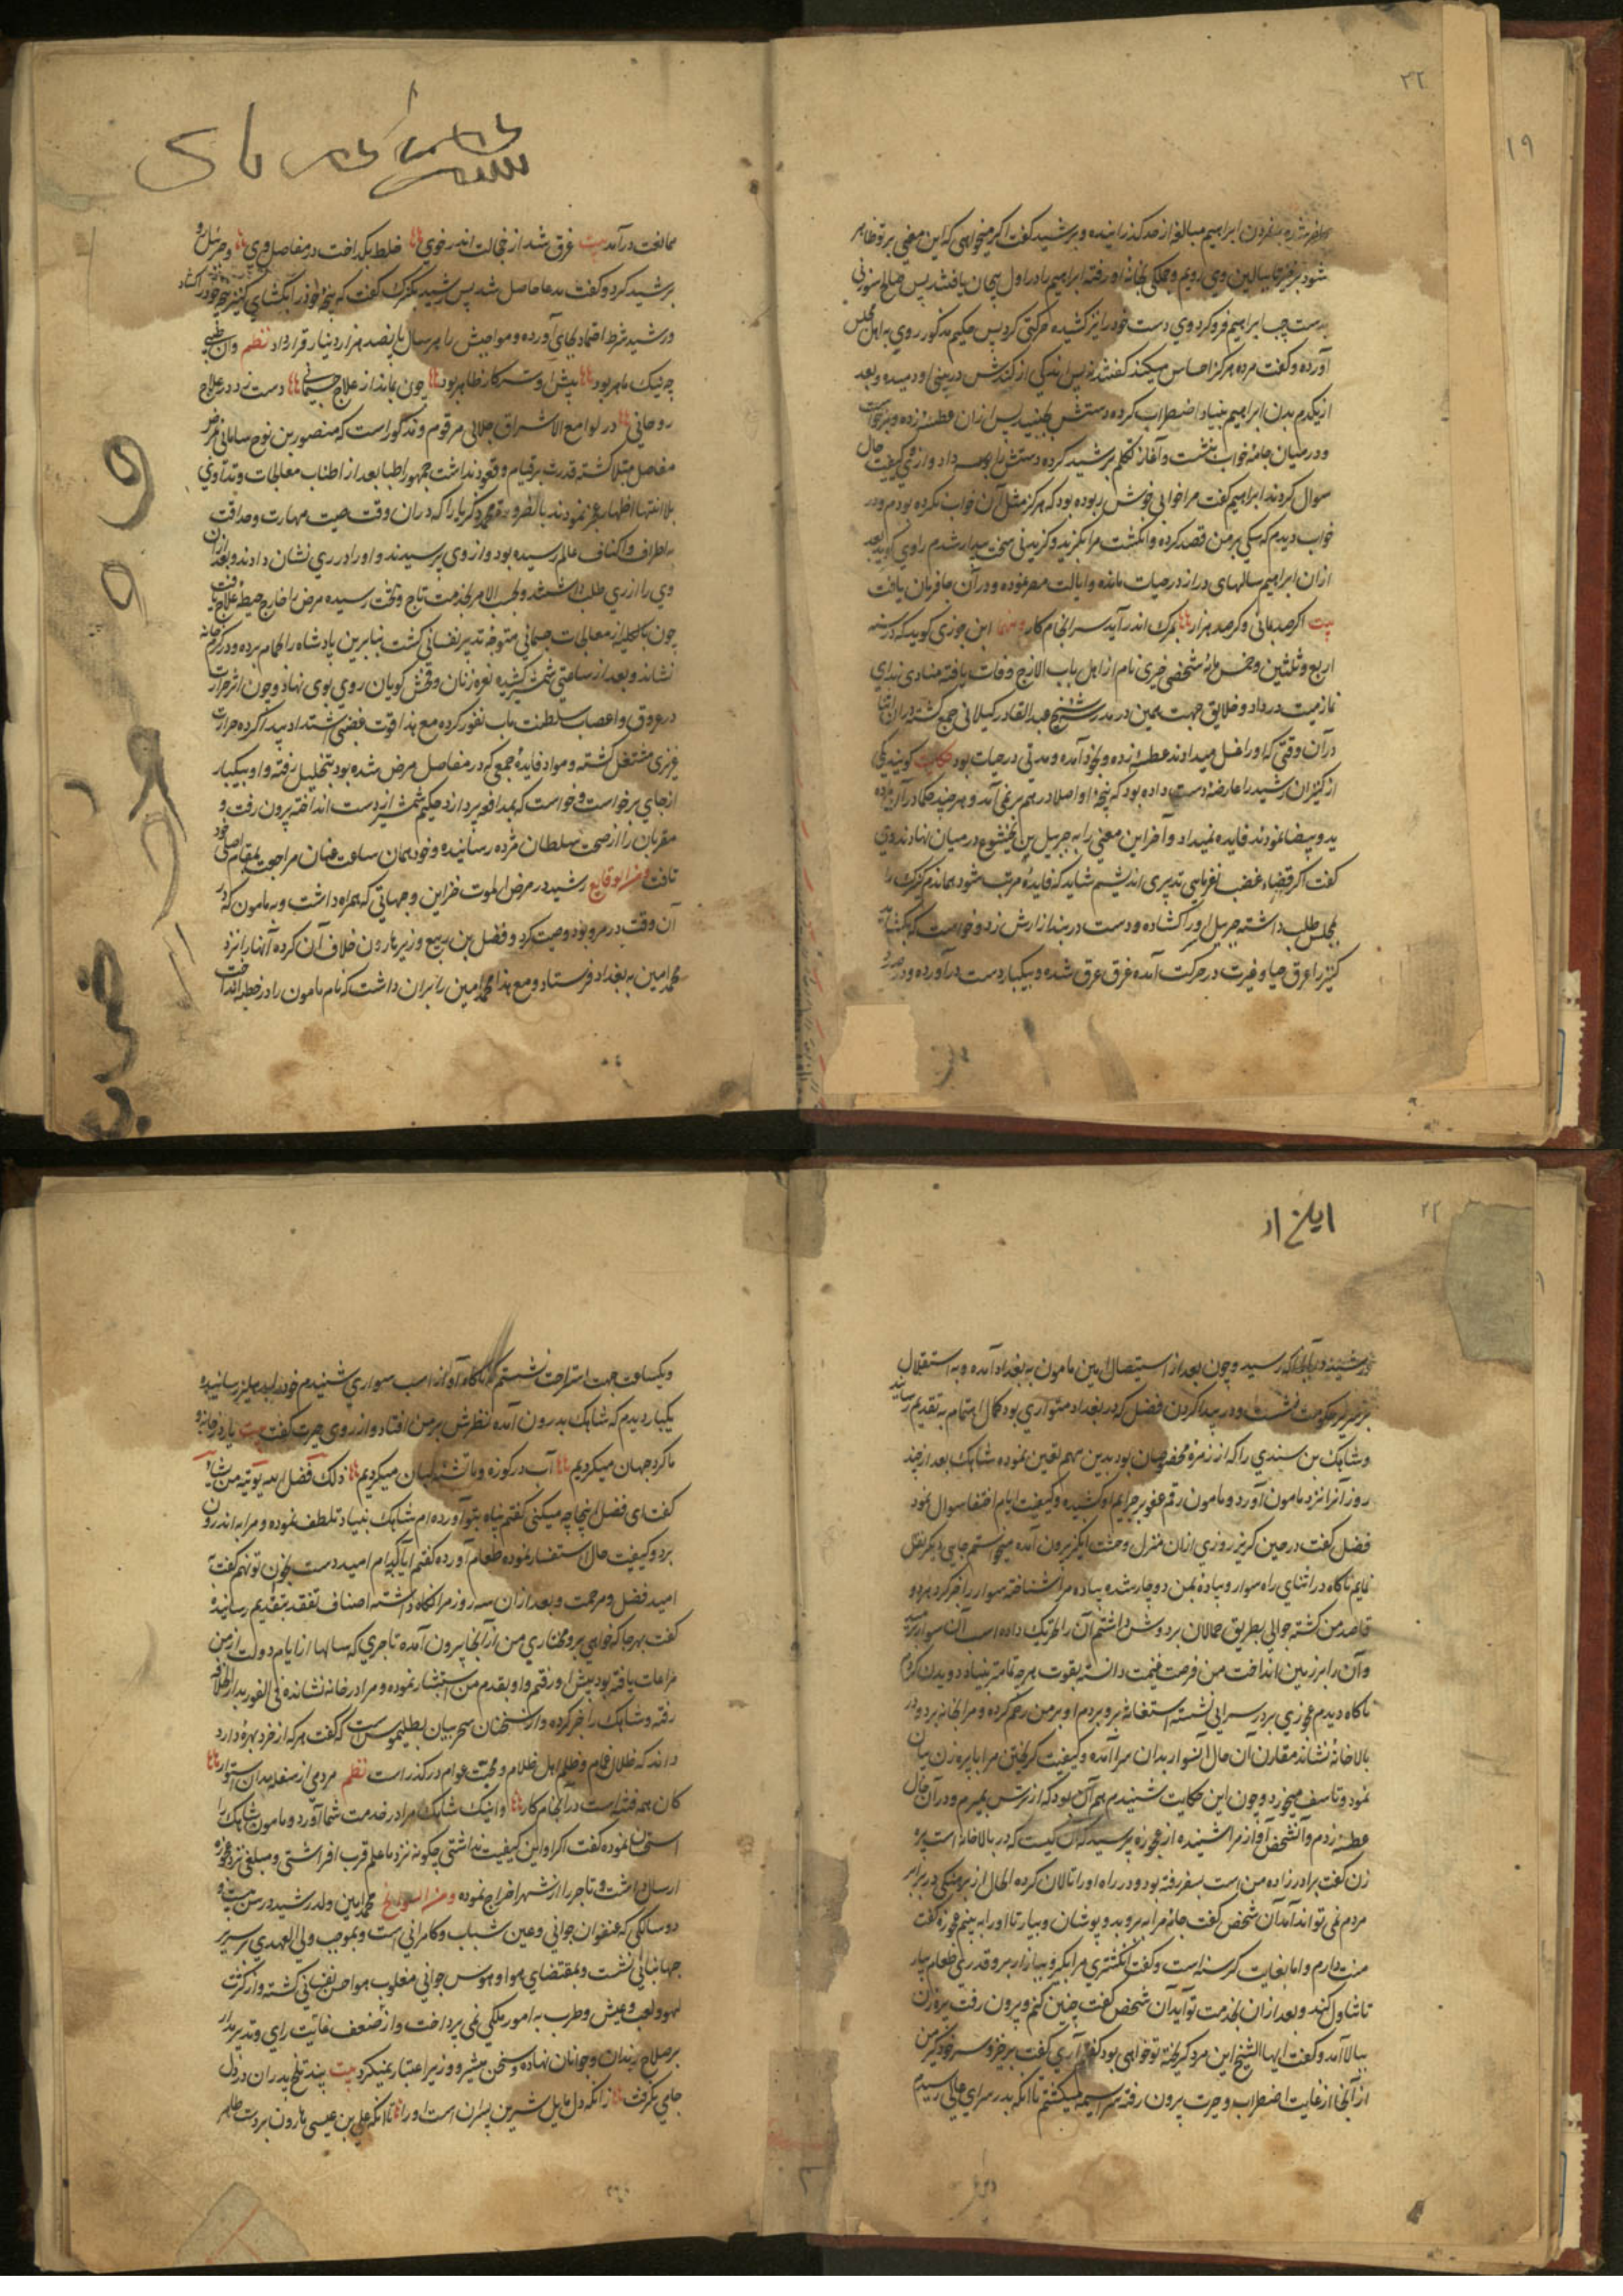 ۲۲
۱۹
شده بمردن ابراهیم مبالغه از حد گذرانیده و برشید گفت اگر میخواهی که این معنی بر تو ظاهر
شود برخیز تا ببالین وی رویم و جملگی بخانه او رفته ابراهیم را در اول بیجان یافتند پس صالح سوزنی
بدست چپ ابراهیم فرو کرد وی دست خود را نیز کشیده حرکتی کرد پس حکیم مذکور روی به اهل مجلس
آورده و گفت مرده هرگز احساس میکند گفتند نه پس اندکی از کندش در بینی او دمیده و بعد
از یکدم بدن ابراهیم بنیاد اضطراب کرده دستش بجنبید پس ازان عطسه زده و برخواست
و در میان جامه خواب بنشست و آغاز تکلم برشید کرده دستش را بوسه داد و از وی کیفیت حال
سوال کردند ابراهیم گفت مرا خوابی خوش ربوده بود که هرگز مثل آن خواب نکرده بودم و در
خواب دیدم که سگی بر من قصد کرده و انگشت مرا بگزید و گزیدنی سخت بیدار شدم راوی گوید بعد
ازان ابراهیم سالهای دراز در حیات مانده و ایالت مصر نموده و در آن جا فرمان یافت
بیت اگر صد بمانی و گر صد هزار بمرگ اندر آید سرانجام کار ومنها ابن جوزی گوید که در سنه
اربع و ثلثین و خمس مائه شخصی خیری نام از اهل باب الازج وفات یافته منادی ندای
نماز میت در داد و خلایق جهت همین در مدرسه شیخ عبد القادر گیلانی جمع گشته دران اثنا
در آن وقتی که او را غسل میدادند عطسه زده و بخود آمده و مدتی در حیات بود حکایت گویند یکی
از کنیزان رشید را عارضهٔ دست داده بود که پنجه او اصلا در هم بر نمی آمد و هر چند حکما در آن ماده
ید و بیضا نمودند فایده نمیداد و آخر این معنی را به جبریل بن بختیشوع در میان نهادند وی
گفت اگر قضاء غضب نفرمایی تدبیری اندیشم شاید که فایده مرتب شود هماندم کنیزک را
بمجلس طلب داشته جبریل او را گشاده و دست در بند ازارش زد و خواست که بگشاید
کنیز را عرق حیا و غیرت در حرکت آمده غرق عرق شده و بیکبار دست در آورده و در صدد
ممانعت درآمد بیت غرق شد از خجالت اندر خوی خلط بگداخت در مفاصل وی و جبرئیل رو
برشید کرد و گفت مدعا حاصل شد پس رشید بکنیزک گفت که پنجه خود را بگشای کنیز پنجه خود را گشاد
و رشید شرط اعتماد بجای آورده و مواجبش را هر سال پانصد هزار دینار قرار داد نظم وان طبیبی
چه نیک ماهر بود پیش او سر کار ظاهر بود چون بماند از علاج جسمانی دست زد در علاج
روحانی در لوامع الاشراق جلالی مرقوم و مذکور است که منصور بن نوح سامانی بمرض
مفاصل مبتلا گشته قدرت بر قیام و قعود نداشت جمهور اطبا بعد از اطناب معالجات و تداوی
بلا انتها اظهار عجز نمودند بالضروره محمد زکریا را که دران وقت صیت مهارت و حذاقت
به اطراف و اکناف عالم رسیده بود و از وی پرسیدند و او را در ری نشان دادند و بعد ازان
وی را از ری طلب داشتند و بحسب الامر بخدمت تاج و تخت رسیده مرض را خارج حیطه علاج یافت
چون بالکلیه از معالجات جسمانی متوجه تدبیر نفسانی گشت بنا برین پادشاه را بحمام برده و در گرم خانه
نشاند و بعد از ساعتی شمشیر کشیده نعره زنان و فحش گویان روی بوی نهاد و چون اثر حرارت
در عروق و اعصاب سلطنت باب نفوذ کرده مع هذا قوت غضبی اشتداد پیدا کرده حرارت
غریزی مشتعل گشته و مواد فایدهٔ جمعی که در مفاصل مرض شده بود بتحلیل رفته و او بیکبار
از جای برخواست و خواست که بمدافعه پردازد حکیم شمشیر از دست انداخته بیرون رفت و
مقربان را از صحت سلطان مژده رسانیده و خود همان ساعت عنان مراجعت بمقام اصلی خود
تافت ومن الوقایع رشید در مرض الموت خزاین و جهاتی که همراه داشت و به مامون که در
آن وقت در مرو بود وصیت کرد و فضل بن ربیع وزیر هارون خلاف آن کرده آنها را نزد
محمد امین به بغداد فرستاد و مع هذا محمد امین را بران داشت که نام مامون را در خطبه انداخت
۲۲
رسید و چون بعد از استیصال امین مامون به بغداد آمده و به استقلال
بر سریر حکومت نشست و در پیدا کردن فضل که در بغداد متواری بود کمال اهتمام به تقدیم رسانید
و شاهک بن سندی را که از زمره بود بدین مهم تعین نموده شاهک بعد از چند
روز آنرا نزد مامون آورد و مامون رقم عفو بر جرایم او کشیده و کیفیت ایام اختفا سوال نمود
فضل گفت در حین گریز روزی ازان منزل وحشت انگیز بیرون آمده میخواستم جایی دیگر نقل
نمایم ناگاه در اثنای راه سوار و پیاده بمن دوچار شده پیاده مرا شناخته سوار را خبر کرد هر دو
قاصد من گشته جوالی بطریق حمالان بر دوش داشتم آن را حرکت داده اسب آن سوار رمید
و آن را بر زمین انداخت من فرصت غنیمت دانسته بقوت هرچه تمامتر بنیاد دویدن کردم
ناگاه دیدم عجوزی بر در سرایی نشسته استغاثه برو بردم او بر من رحم کرده و مرا بخانه برد و در
بالاخانهٔ نشاند مقارن آن حال آن سوار بدان سرا آمده و کیفیت گریختن مرا با پیرزن بیان
نمود و تاسف میخورد و چون این حکایت شنیدم بیم آن بود که از ترس بمیرم و در آن حال
عطسه زدم و آن شخص آواز مرا شنیده از عجوزه پرسید که آن کیست که در بالاخانه است پیره
زن گفت برادر زاده من است بسفر رفته بود و در راه او را تالان کرده الحال از برهنگی در برابر
مردم نمی تواند آمد آن شخص گفت جامه مرا ببر و بدو پوشان و بیار تا او را به بینم عجوزه گفت
منت دارم و اما بغایت گرسنه است و گفت انگشتری مرا بگیر و ببازار برو قدری طعام بیار
تا تناول کند و بعد ازان بخدمت تو آید آن شخص گفت چنین کنم و بیرون رفت پیره زن
ببالا آمد و گفت ایها الشیخ این مرد گریخته تو خواهی بود گفتم آری گفت برخیز و سر خود گیر من
از آنجا از غایت اضطراب و حیرت بیرون رفته سراسیمه میگشتم تا آنکه بدر سرای عالی رسیدم
و یکساعت جهت استراحت نشستم که ناگاه آواز اسب سواری شنیدم خود را بدهلیز رسانیده و
یکبار دیدم که شاهک بدرون آمده نظرش بر من افتاد و از روی حیرت گفت بیت یار در خانه و
ما گرد جهان میگردیم آب در کوزه و ما تشنه لبان میگردیم ذلک فضل الله یوتیه من یشاء
گفت ای فضل اینجا چه میکنی گفتم پناه بتو آورده ام شاهک بنیاد تلطف نموده و مرا به اندرون
برد و کیفیت حال استفسار نموده طعام آورده گفتم آیا کدام امید دست بخوان تو نهم گفت به
امید فضل و مرحمت و بعد ازان سه روز مرا نگاه داشته اصناف تفقد بتقدیم رسانیده
گفت بهر جا که خواهی برو مختاری من از آنجا بیرون آمده تاجری که سالها از ایام دولت از من
مراعات یافته بود پیش او رفتم و او بقدم من استبشار نموده و مرا در خانه نشانده فی الفور بدار الخلافه
رفته و شاهک را خبر کرده و از سخنان سحر بیان بطلیموس است که گفت هر که از خرد بهرهٔ دارد
داند که ظلال غمام و ظلم اهل ظلام و محبت عوام در گذر است نظم مردمی از سفله بدان استوار
کان همه فتنه است در انجام کار و اینک شاهک مرا در خدمت شما آورد و مامون شاهک را
استحسان نموده گفت اگر او این کیفیت نداشتی چگونه نزد ما علم قرب افراشتی و مبلغی نزد عجوزه
ارسال داشت و تاجر را از شهر اخراج نموده ومن السوانح محمد امین ولد رشید در سن بیست و
دو سالگی که عنفوان جوانی و عین شباب و کامرانی است و بموجب ولی العهدی بر سریر
جهانبانی نشست و بمقتضای هوا و هوس جوانی مغلوب هواجس نفسانی گشته و از کثرت
لهو و لعب و عیش و طرب به امور ملکی نمی پرداخت و از ضعف غایت رای و تدبیر مدار
بر صلاح رندان و جوانان نهاده و سخن مشیر و وزیر اعتبار نمیکرد بیت پند تلخ پدران در دل
جای نگرفت زانکه دل مایل شیرین پسران است او را تا آنکه علی بن عیسی هارون بر دست طاهر